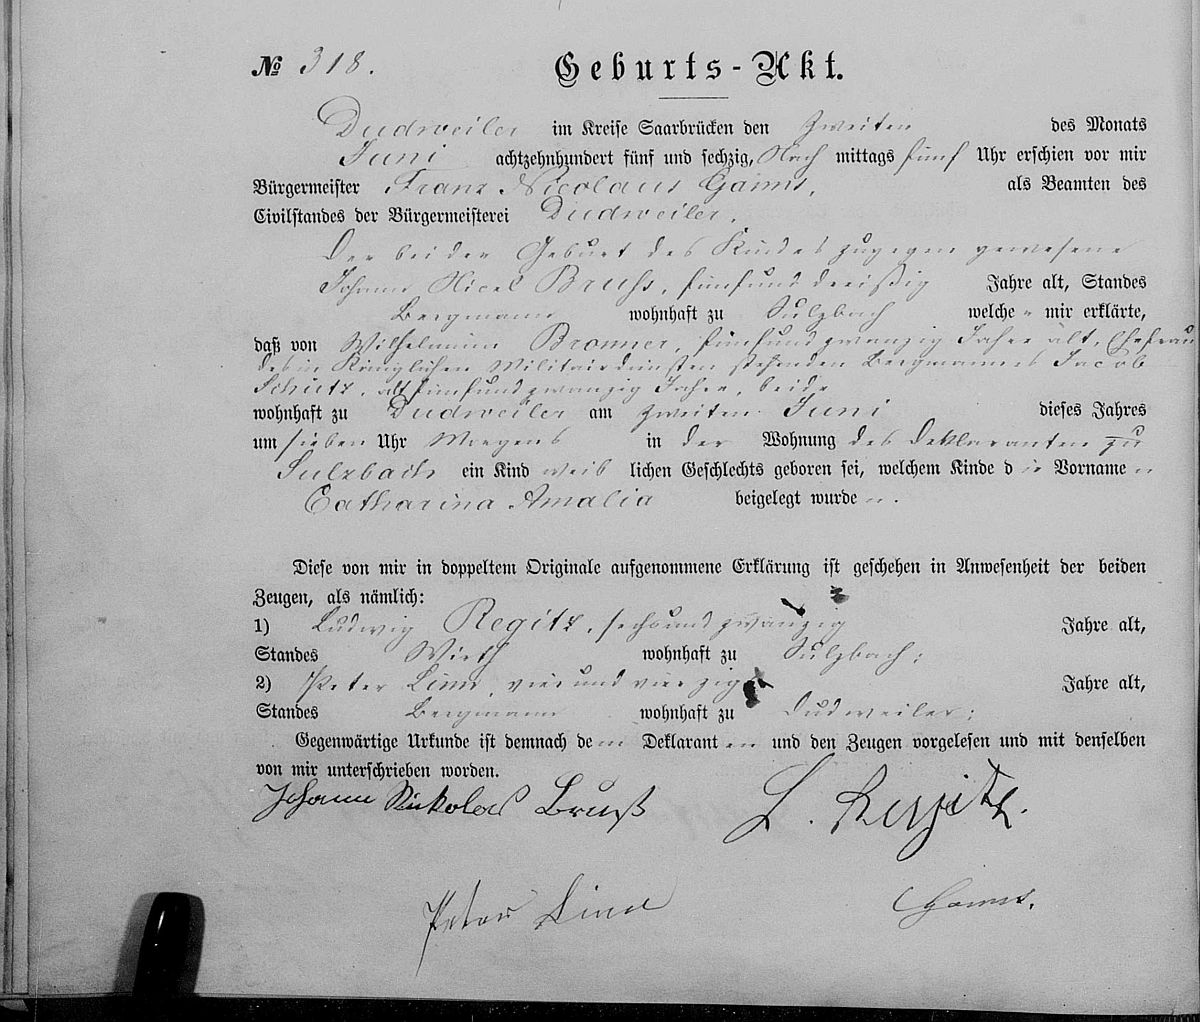 № 318. Geburts-Akt.
Dudweiler im Kreise Saarbrücken den zweiten des Monats
Juni achtzehnhundert fünf und sechzig, Nach mittags fünf Uhr erschien vor mir
Bürgermeister Franz Nicolaus als Beamten des
Civilstandes der Bürgermeisterei Dudweiler.
Der bei der Geburt des Kindes zugegen gewesene
Johann Nicol Bruhs, fünfund dreißig Jahre alt, Standes
Bergmann wohnhaft zu Sulzbach welche mir erklärte,
daß von Wilhelmina Bronner, fünfund zwanzig Jahre alt, Ehefrau
des in Königlichen Militairdiensten stehenden Bergmannes Jacob
Schütz, alt fünfundzwanzig Jahre, beide
wohnhaft zu Dudweiler am zweiten Juni dieses Jahres
um sieben Uhr Morgens in der Wohnung des Deklaranten zu
Sulzbach ein Kind weib lichen Geschlechts geboren sei, welchem Kinde d ie Vorname n
Catharina Amalia beigelegt wurde n.
Diese von mir in doppeltem Originale aufgenommene Erklärung ist geschehen in Anwesenheit der beiden
Zeugen, als nämlich:
1) Ludwig Regitz, sechsund zwanzig Jahre alt,
Standes Wirth wohnhaft zu Sulzbach;
2) Peter Linn, vier und vier zig Jahre alt,
Standes Bergmann wohnhaft zu Dudweiler;
Gegenwärtige Urkunde ist demnach de m Deklarant en und den Zeugen vorgelesen und mit denselben
von mir unterschrieben worden.
Johann Nikolas Bruß L. Regitz.
Peter Linn